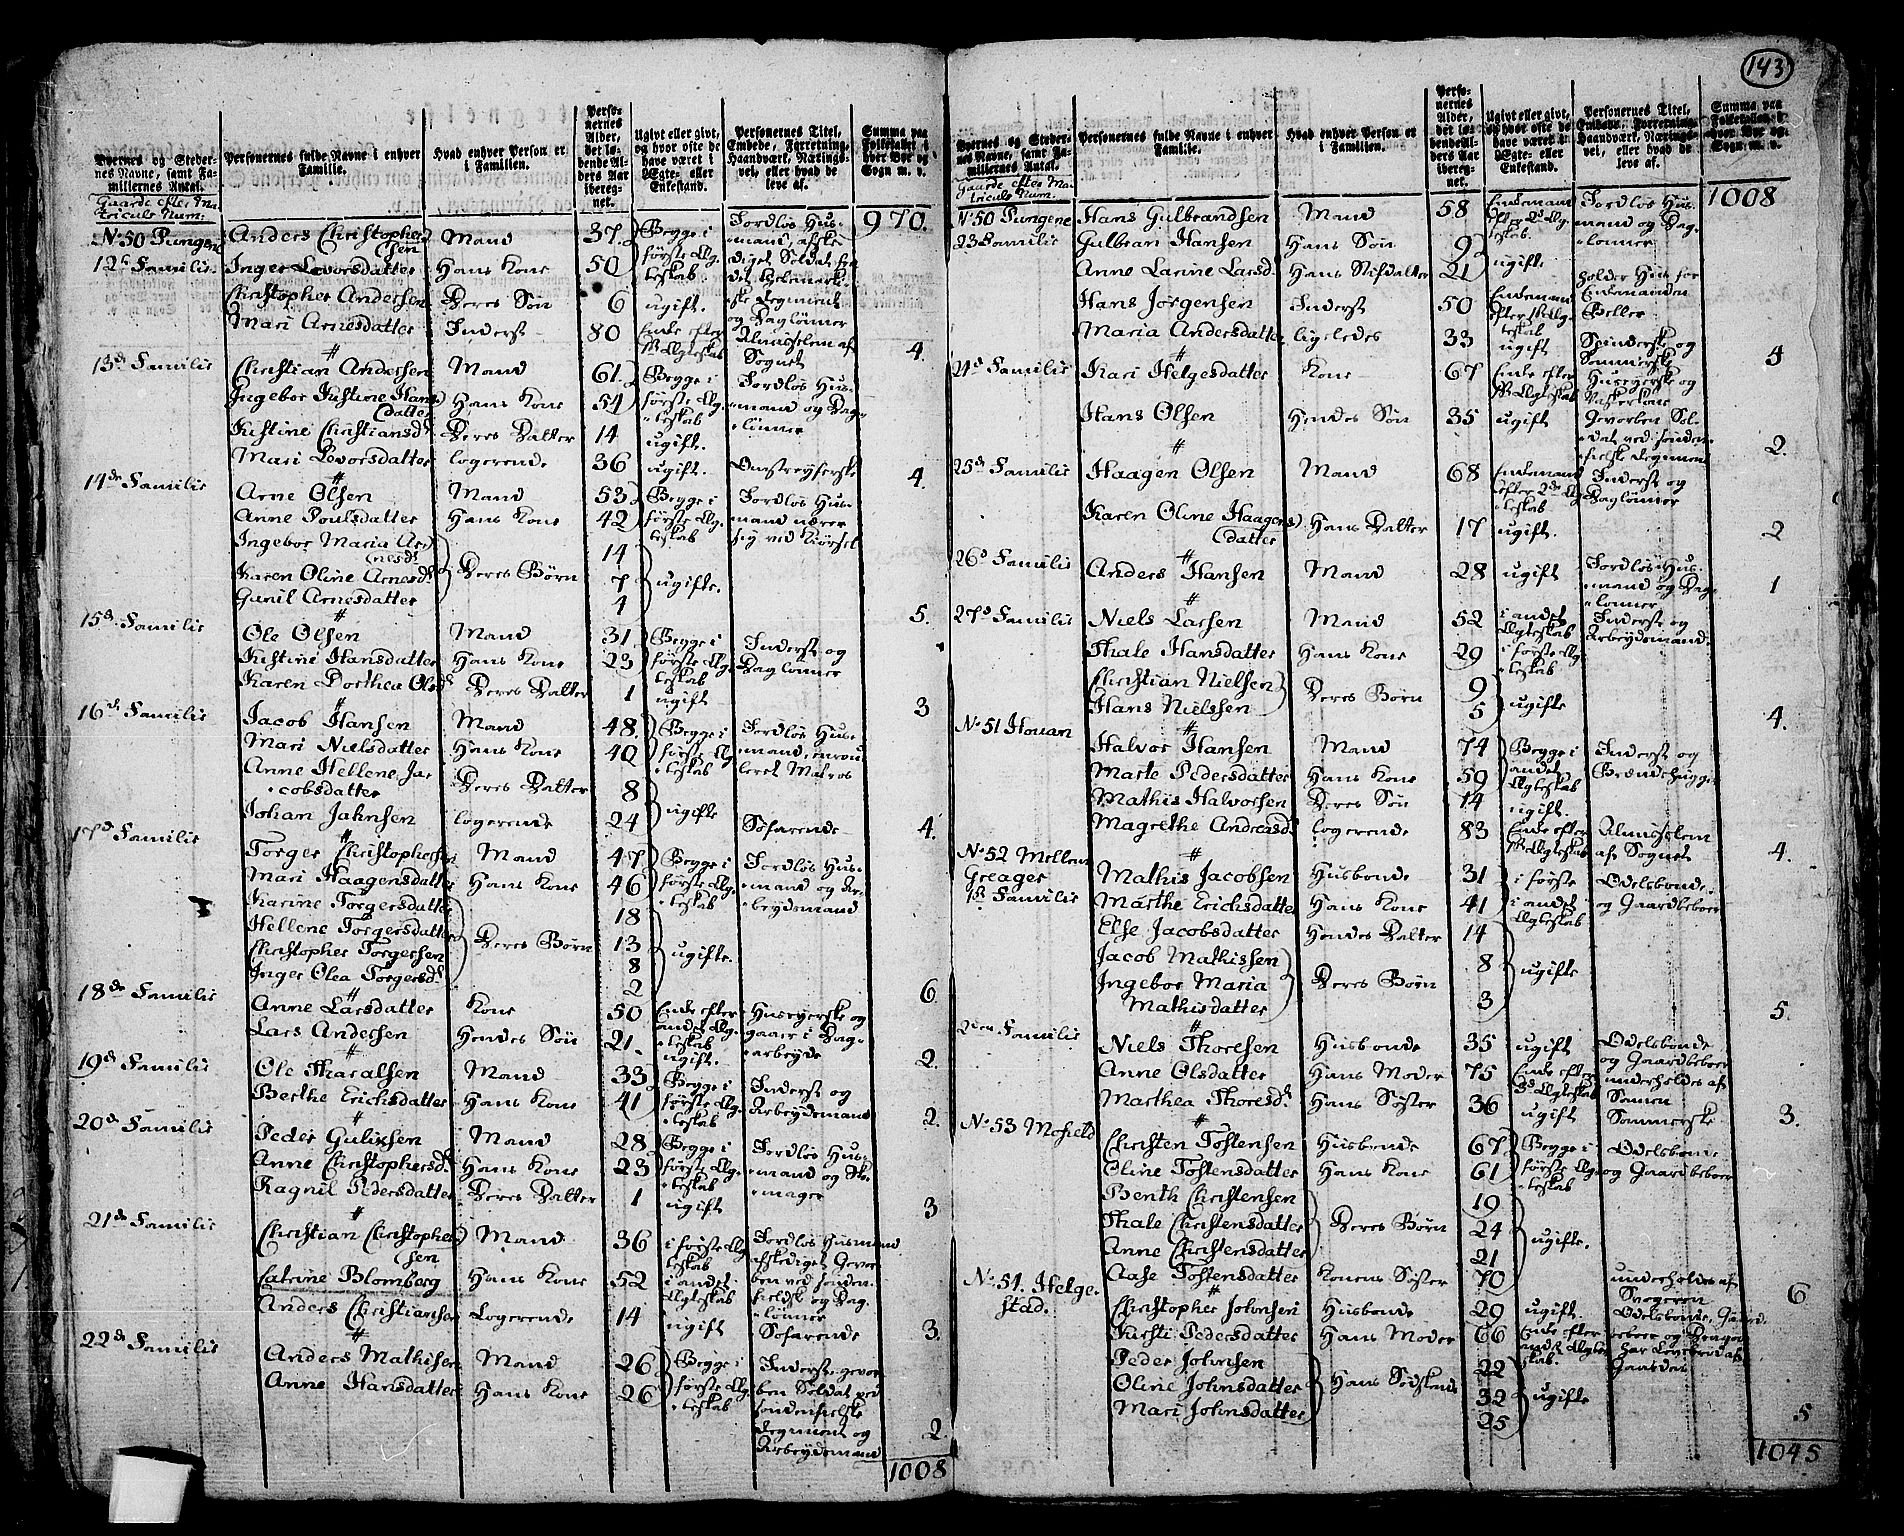 143
Byernes og Stedernes Navne, samt Familiernes Antal.
Personernes fulde Navne i enhver Familie.
Hvad enhver Person er i Familien.
Personernes Alder, det løbende Alders Aar iberegnet.
Ugivt eller givt, og hvor ofte de have været i Ægte- eller Enkestand.
Personernes Titel, Embede, Forretning, Haandværk, Næringsvei, eller hvad de leve af.
Summa paa Folketallet i hver Bye og Sogn m. v.
Gaarde efter Matriculs Num:
970.
No 50 Pungene Anders Christophersen Mand 37 Begge i første Ægteskab Jordløs Husmand, afskediget Soldat fra det Regiment og Daglønner
12te Familie Inger Levorsdatter Hans Kone 50
Christopher Andersen Deres Søn 6 ugift.
Mari Arnesdatter Inderst 80 Enke efter 1ste Ægteskab Almisselem af Sognet 4.
13de Familie Christian Andersen Mand 61 Begge i første Ægteskab Jordløs Husmand og Daglønner
Ingebor Kistine Hansdatter Hans Kone 54
Kistine Christiansd. Deres Datter 14 ugift.
Mari Levorsdatter logerende 36 ugift. Omstreyferske 4.
14de Familie Arne Olsen Mand 53 Begge i første Ægteskab Jordløs Husmand nærer sig ved Kiørsel
Anne Poulsdatter Hans Kone 42
Ingebor Maria Arnesd. Deres Børn 14 ugifte.
Karen Oline Arnesd. 7
Gunil Arnesdatter 4 5.
15de Familie Ole Olsen Mand 31 Begge i første Ægteskab Inderst og Daglønner
Kistine Hansdatter Hans Kone 23
Karen Dorthea Olsd. Deres Datter 1 ugift 3
16de Familie Jacob Hansen Mand 48 Begge i første Ægteskab Jordløs Husmand, enrouleret Matros
Mari Nielsdatter Hans Kone 40
Anne Hellene Jacobsdatter Deres Datter 8 ugifte
Johan Jahnsen logerende 24 Søfarende 4.
17de Familie Torger Christophersen Mand 47 Begge i første Ægteskab Jordløs Husmand og Arbeydsmand
Mari Haagensdatter Hans Kone 46
Karine Torgersdatter Deres Børn 18 ugifte.
Hellene Torgersdatter 13
Christopher Torgersen 8
Inger Olea Torgersd. 2 6.
18de Familie Anne Larsdatter Kone 50 Enke efter andet Ægteskab Huusyerske og gaaer i Dagarbeyde
Lars Andersen Hendes Søn 21. ugift. 2.
19de Familie Ole Tharalsen Mand 33 Begge i første Ægteskab Inderst og Arbeydsmand
Berthe Erichsdatter Hans Kone 41 2.
20de Familie Peder Gulixsen Mand 28 Begge i første Ægteskab Jordløs Husmand og Skomager
Anne Christophersd. Hans Kone 23
Ragnil Pedersdatter Deres Datter 1 ugift 3
21de Familie Christian Christophersen Mand 36 i første Ægteskab Jordløs Husmand afskediget Gevorben ved søndenfieldske og Daglønner
Catrine Blomberg Hans Kone 52 i andet Ægteskab
Anders Christiansen Logerende 14 ugift Søfarende 3.
22de Familie Anders Mathisen Mand 26 Begge i første Ægteskab Inderst, gevorben Soldat ved søndenfielske Regiment og Arbeydsmand
Anne Hansdatter Hans Kone 26 2.
1008
Byernes og Stedernes Navne, samt Familiernes Antal.
Personernes fulde Navne i enhver Familie.
Hvad enhver Person er i Familien.
Personernes Alder, det løbende Alders Aar iberegnet.
Ugivt eller givt, og hvor ofte de have været i Ægte- eller Enkestand.
Personernes Titel, Embede, Forretning, Haandværk, Næringsvei, eller hvad de leve af.
Summa paa Folketallet i hver Bye og Sogn m. v.
Gaarde efter Matriculs Num.
1008
No 50 Pungene Hans Gulbrandsen Mand 58 Enkemand efter Ægteskab. Jordløs Husmand og Daglønner
23 Familie Gulbran Hansen Hans Søn 9 ugift
Anne Larine Larsd. Hans Stifdatter 21 holder Hus for Enkemanden
Hans Jørgensen Inderst 50 Enkemand efter 1ste Ægteskab Betler
Maria Andersdatter ligeledes 33 ugift Spinderske og Sømmerske 5
24de Familie Kari Helgesdatter Kone 67 Enke efter 1ste Ægteskab Husyerske og Vaskerkone
Hans Olsen Hendes Søn 35 ugift Gevorben Soldat ved søndenfielske Regiment 2.
25de Familie Haagen Olsen Mand 68 Enkemand efter 2det Ægteskab Inderst og Daglønner
Karen Oline Haagensdatter Hans Datter 17 ugift. 2
26de Familie Anders Hansen Mand 28 ugift Jordløs Husmand og Daglønner 1
27de Familie Niels Larsen Mand 52 i andet Ægteskab Inderst og Arbeydsmand.
Thale Hansdatter Hans Kone 29 i første Ægteskab
Christian Nielsen Deres Børn 9 ugifte
Hans Nielssen 5 4.
No 51 Houan Halvor Hansen Mand 74 Begge i andet Ægteskab Inderst og Brændehugger
Marte Pedersdatter Hans Kone 59
Mathis Halvorsen Deres Søn 14 ugift.
Magrethe Andreasd. logerende 83 Enke efter 1ste Ægteskab Almisselem af Sognet 4.
No 52 Mellem Greager
1ste Familie Mathis Jacobsen Husbonde 31 i første Odelsbonde og Gaardbeboer
Marthe Erichsdatter Hans Kone 41 i andet Ægteskab
Else Jacobsdatter Hendes Datter 14 ugifte
Jacob Mathissen Deres Børn 8
Ingebor Maria Mathisdatter 3 5.
2den Familie Niels Thoresen Husbonde 35 ugift Odelsbonde og Gaardbeboer
Anne Olsdatter Hans Moder 75 Enke efter Ægteskab underholdes af Sønnen
Marthea Thoresd. Hans Søster 36 ugift Sømmerske 3.
No 53 Mofield Christen Tostensen Husbonde 67 Begge i første Ægteskab Odelsbonde og Gaardbeboer
Oline Tostensdatter Hans Kone 61
Benth Christensen Deres Børn 19 ugifte.
Thale Christensdatter 24
Anne Christensdatter 21
Aase Tostensdatter Konens Søster 70 underholdes af Svogeren 6
No 54. Helgestad. Christopher Johnsen Husbonde 29 ugift. Odelsbonde, Gaardbeboer og Dragon
Kirsti Pedersdatter Hans Moder 66 Enke efter Ægteskab. har Levebrød af Gaarden
Peder Johnsen Hans Sødskende 22 ugifte
Oline Johnsdatter 32
Mari Johnsdatter 25 5
1045